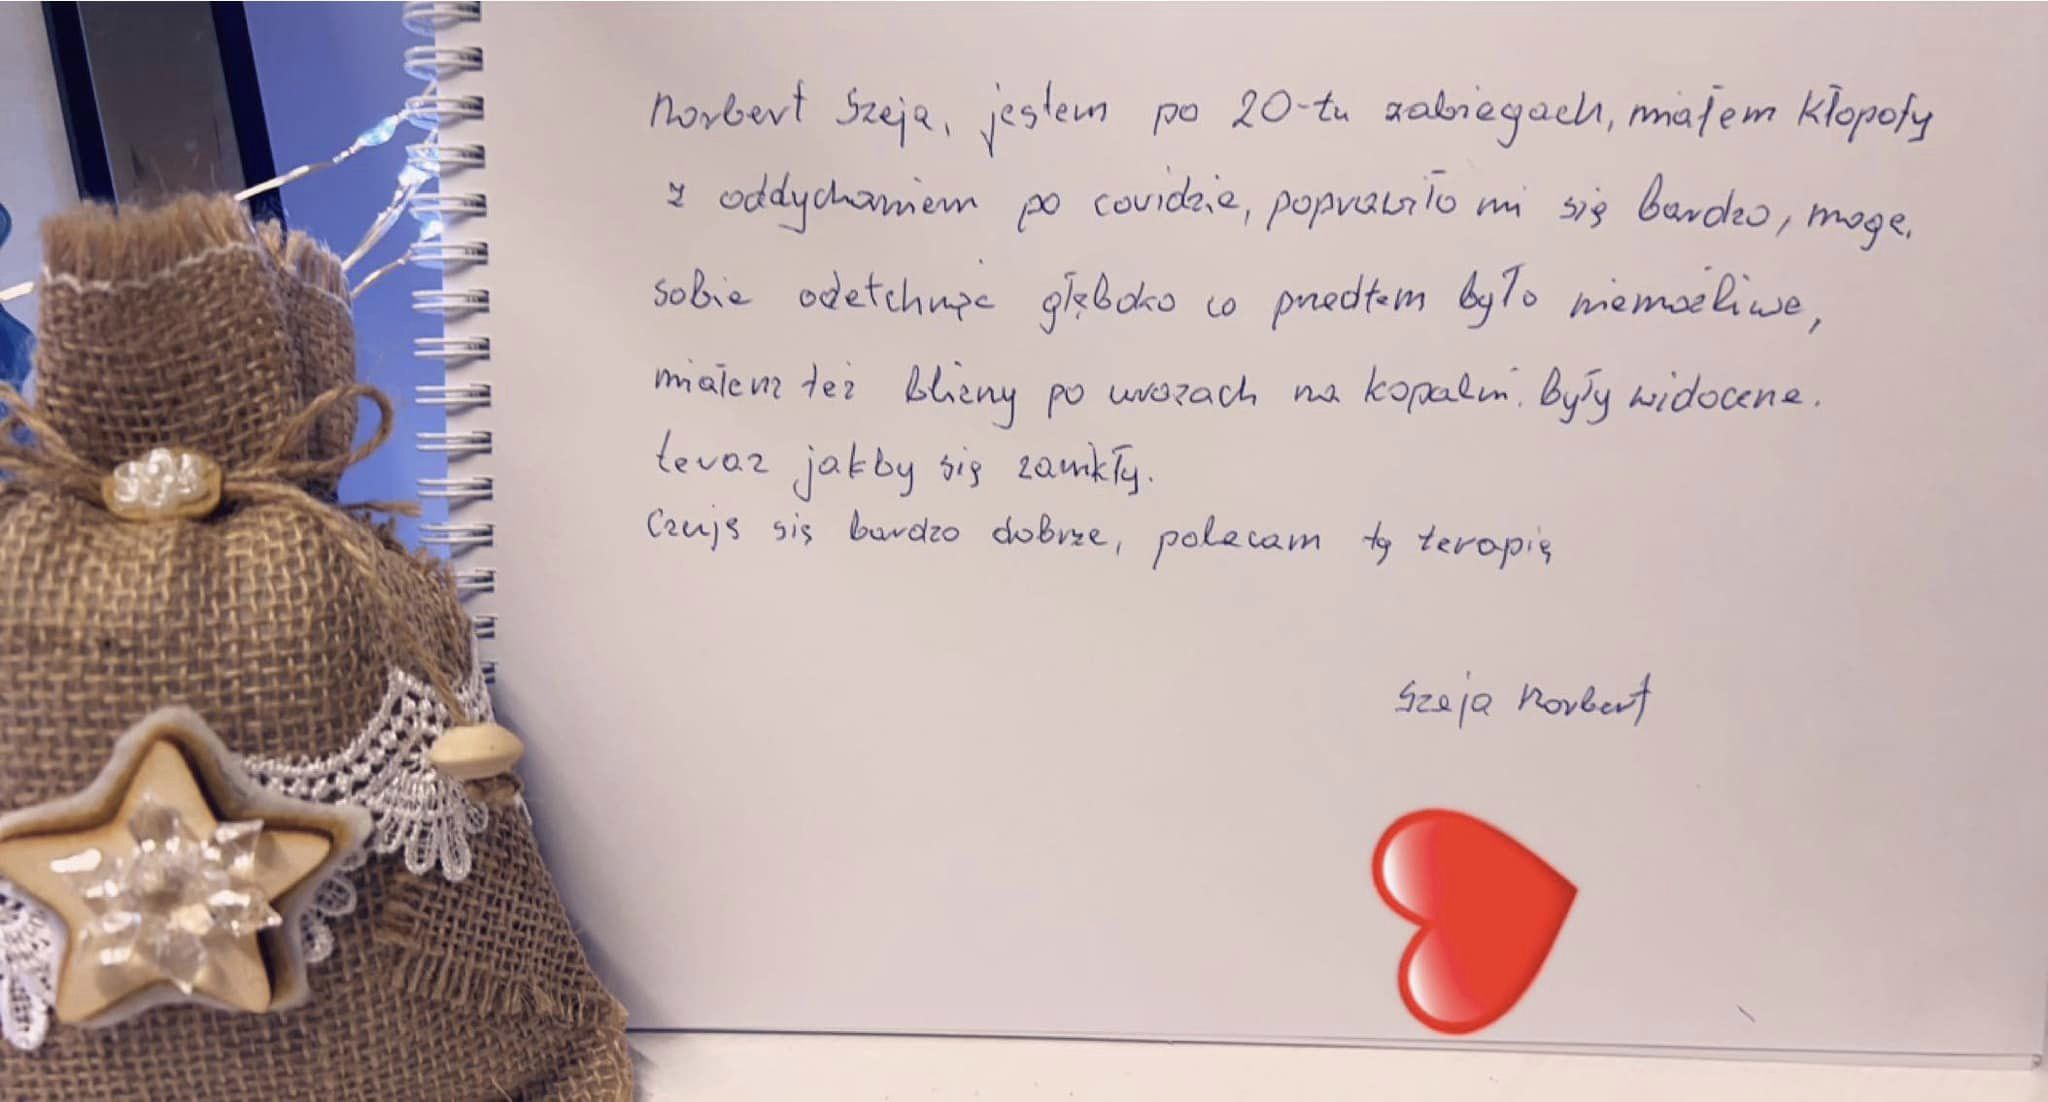 Norbert Szeja, jestem po 20-tu zabiegach, miałem kłopoty
z oddychaniem po covidzie, poprawiło mi się bardzo, mogę
sobie odetchnąć głęboko co przedtem było niemożliwe,
miałem też blizny po urazach na kopalni. były widoczne.
teraz jakby się zamkły.
Czuję się bardzo dobrze, polecam tę terapię
Szeja Norbert